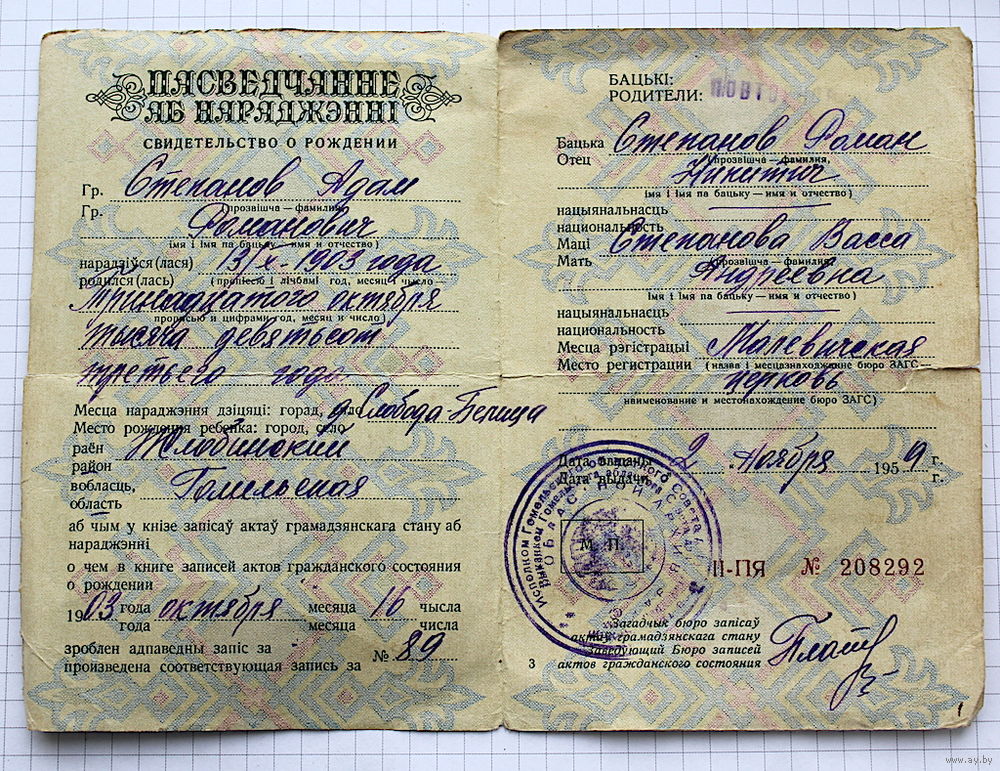 ПАСВЕДЧАННЕ
АБ НАРАДЖЭННІ
СВИДЕТЕЛЬСТВО О РОЖДЕНИИ
Гр. Степанов Адам
Гр. прозвішча — фамилия,
Романович
імя і імя па бацьку — имя и отчество)
нарадзіўся(лася) 13/X - 1903 года
родился(лась) (прописью и цифрами год, месяц и число)
тринадцатого октября
прописью и цифрами год, месяц и число)
тысяча девятьсот
третьего года
Месца нараджэння дзіцяці: горад, сяло д. Слобода Бечица
Место рождения ребенка: город, село
раён Жлобинский
район
вобласць, Гомельская
область
аб чым у кнізе запісаў актаў грамадзянскага стану аб
нараджэнні
о чем в книге записей актов гражданского состояния
о рождении
1903 года октября месяца 16 чысла
года месяца числа
зроблен адпаведны запіс за
произведена соответствующая запись за № 89
БАЦЬКІ:
РОДИТЕЛИ:
Бацька Степанов Роман
Отец (прозвішча — фамилия,
Никитич
(імя і імя па бацьку — имя и отчество)
нацыянальнасць
национальность
Маці Степанова Васса
Мать (прозвішча — фамилия,
Андреевна
(імя і імя па бацьку — имя и отчество)
нацыянальнасць
национальность
Месца рэгістрацыі Малевичская
Место регистрации (назва і месцазнаходжанне бюро ЗАГС —
церковь
наименование и местонахождение бюро ЗАГС)
Дата выдачы 2 ноября 1959 г.
Дата выдачи г.
М. П.
II-ПЯ № 208292
Загадчык бюро запісаў
актаў грамадзянскага стану
Заведующий Бюро записей
актов гражданского состояния
3
www.ay.by